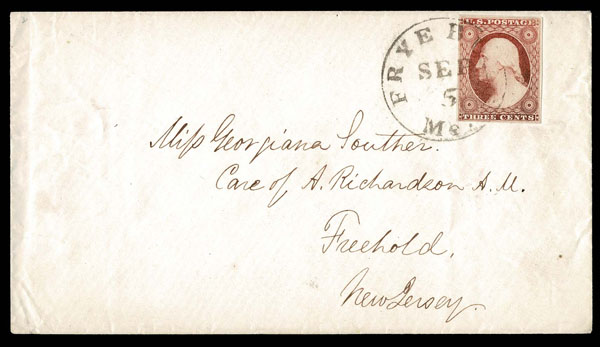 FRYE B
SEP
5
Me.
U.S. POSTAGE
THREE CENTS
Miſs Georgiana Souther.
Care of A. Richardson A. M.
Freehold.
New Jersey.